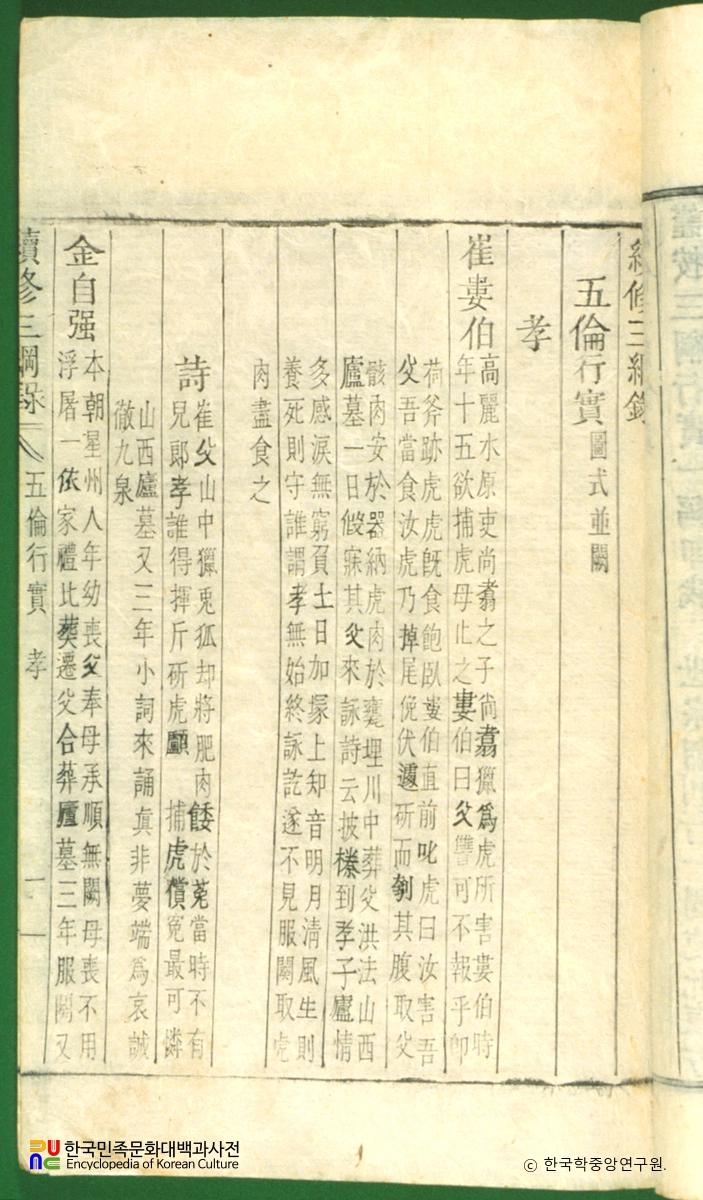 續修三綱錄
五倫行實圖式並闕
孝
崔婁伯高麗水原吏尚翥之子尙翥獵爲虎所害婁伯時
年十五欲捕虎母止之婁伯曰父讐可不報乎卽
荷斧跡虎虎旣食飽臥婁伯直前叱虎曰汝害吾
父吾當食汝虎乃掉尾俛伏遽斫而刳其腹取父
骸肉安於器納虎肉於甕埋川中葬父洪法山西
廬墓一日假寐其父來詠詩云披榛到孝子廬情
多感淚無窮負土日加塚上知音明月清風生則
養死則守誰謂孝無始終詠訖遂不見服闋取虎
肉盡食之
詩崔父山中獵兎狐却將肥肉餧於菟當時不有
兄郞孝誰得揮斤斫虎顱 捕虎償冤最可憐
山西廬墓又三年小詞來誦眞非夢端爲哀誠
徹九泉
金自强本朝星州人年幼喪父奉母承順無闕母喪不用
浮屠一依家禮比葬遷父合葬廬墓三年服闋又
續修三綱錄 五倫行實 孝 一
한국민족문화대백과사전
Encyclopedia of Korean Culture
© 한국학중앙연구원.